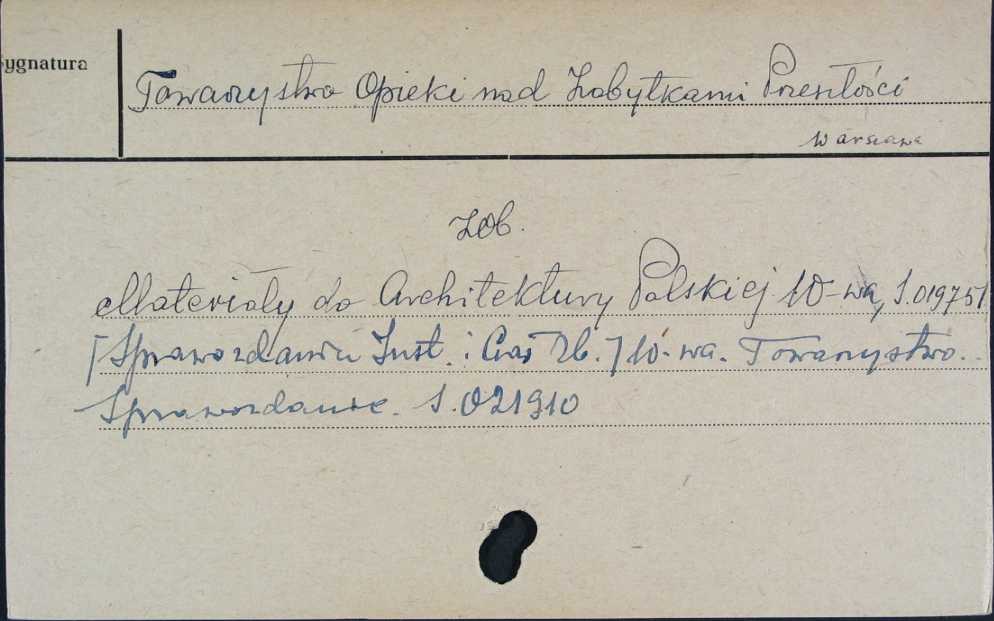 Sygnatura
Towarzystwo Opieki nad Zabytkami Przeszłości
Warszawa
zob.
Materiały do Architektury Polskiej W-wa, S.019751
[Sprawozdania Inst. i Tow. Zb.] W-wa. Towarzystwo..
Sprawozdanie. S.021910